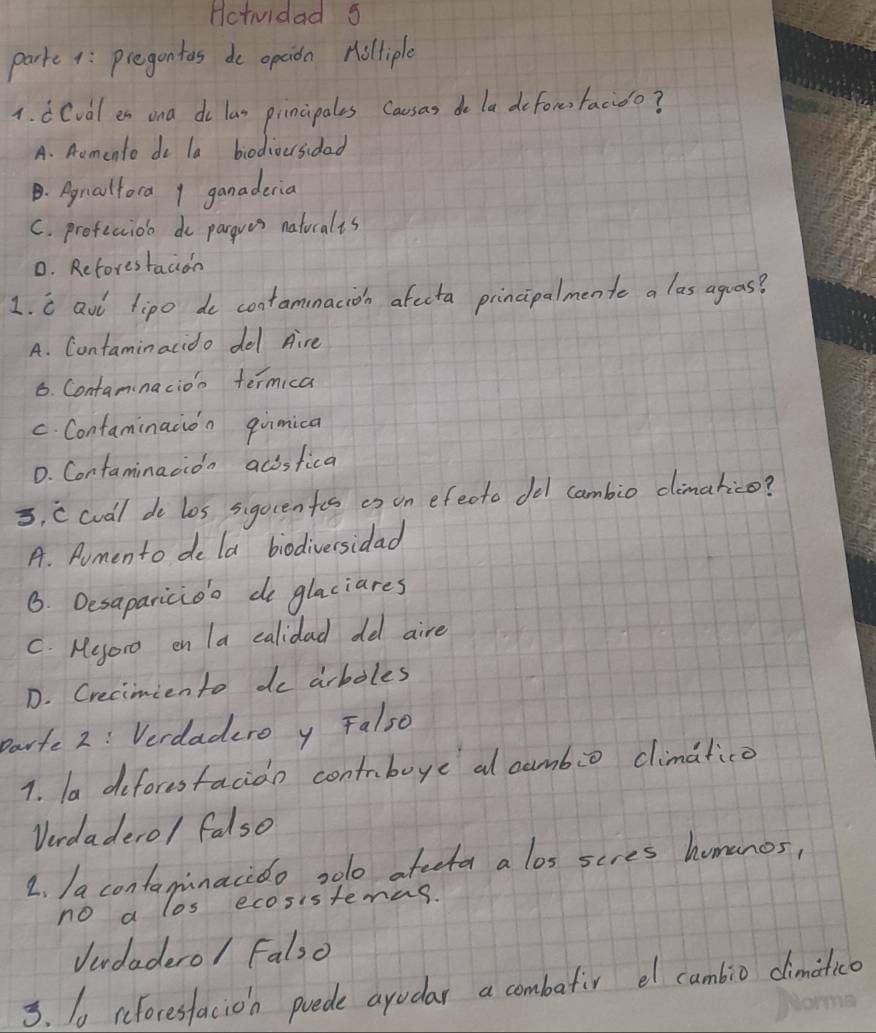 Actividad 5
parte 1: preguntas de opción Múltiple
1. ¿Cuál es una de las principales causas de la deforestación?
A. Aumento de la biodiversidad
B. Agricultura y ganaderia
C. protección de parques naturales
D. Reforestación
2. ¿ qué tipo de contaminación afecta principalmente a las aguas?
A. Contaminación del Aire
B. Contaminación térmica
C. Contaminación química
D. Contaminación acústica
3. ¿ cuál de los siguientes es un efecto del cambio climatico?
A. Aumento de la biodiversidad
B. Desaparición de glaciares
C. Mejora en la calidad del aire
D. Crecimiento de árboles
Parte 2: Verdadero y Falso
1. la deforestación contribuye al cambio climático
Verdadero/ falso
2. la contaminación solo afecta a los seres humanos,
no a los ecosistemas.
Verdadero/ Falso
3. la reforestación puede ayudar a combatir el cambio climático
Norma